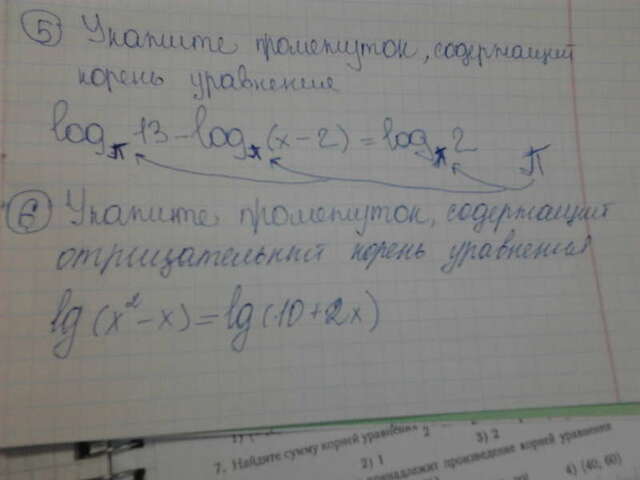 5 Укажите промежуток, содержащий
корень уравнения
log_π 13 - log_π (x - 2) = log_π 2
π
6 Укажите промежуток, содержащий
отрицательный корень уравнения
lg (x² - x) = lg (10 + 2x)
2
3) 2
7. Найдите сумму корней уравнения
2) 1
принадлежит произведение корней уравнения
4) (40, 60)